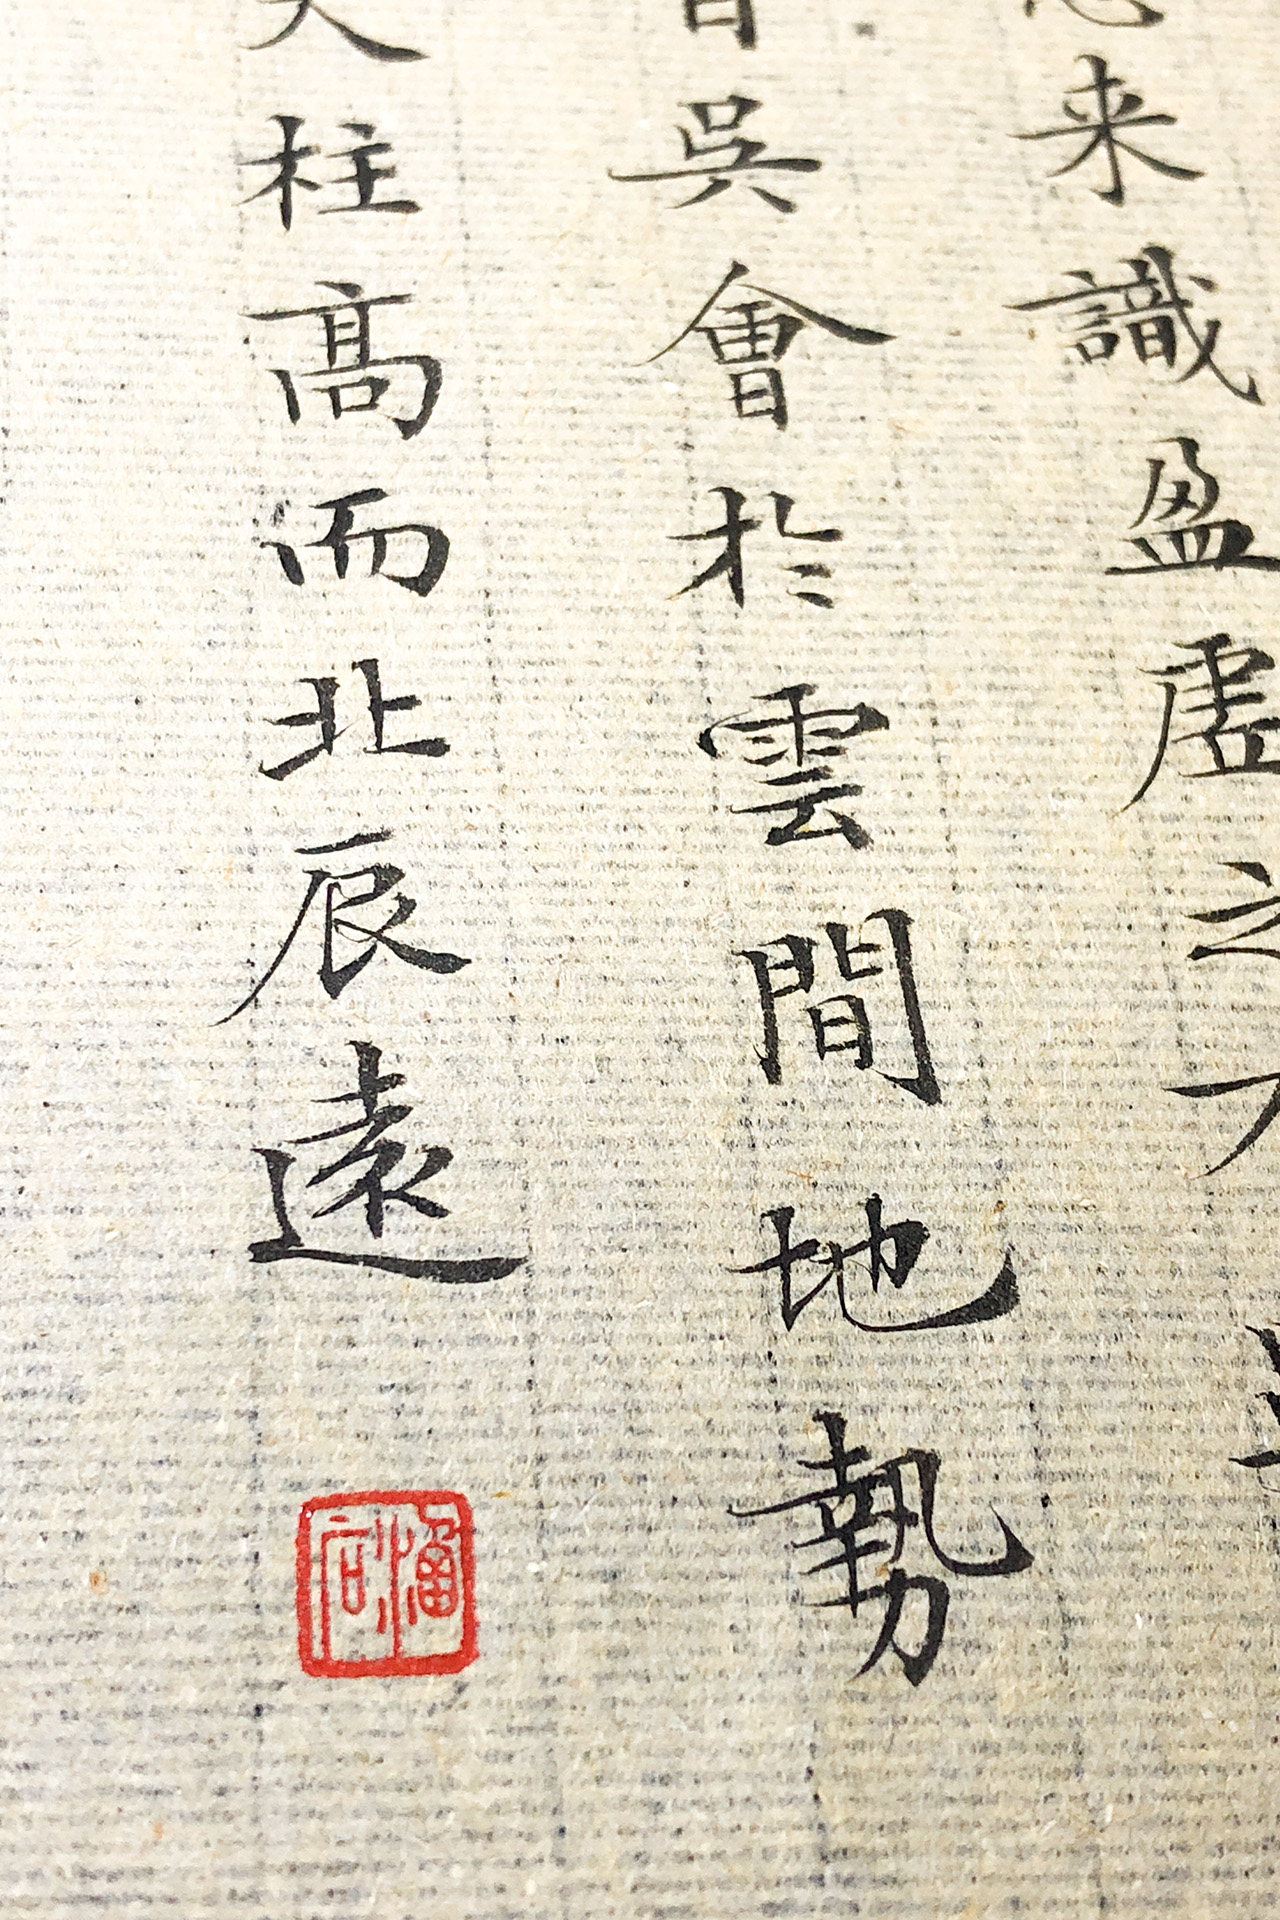 来識盈虛之
吳會於雲間地勢
柱髙而北辰遠